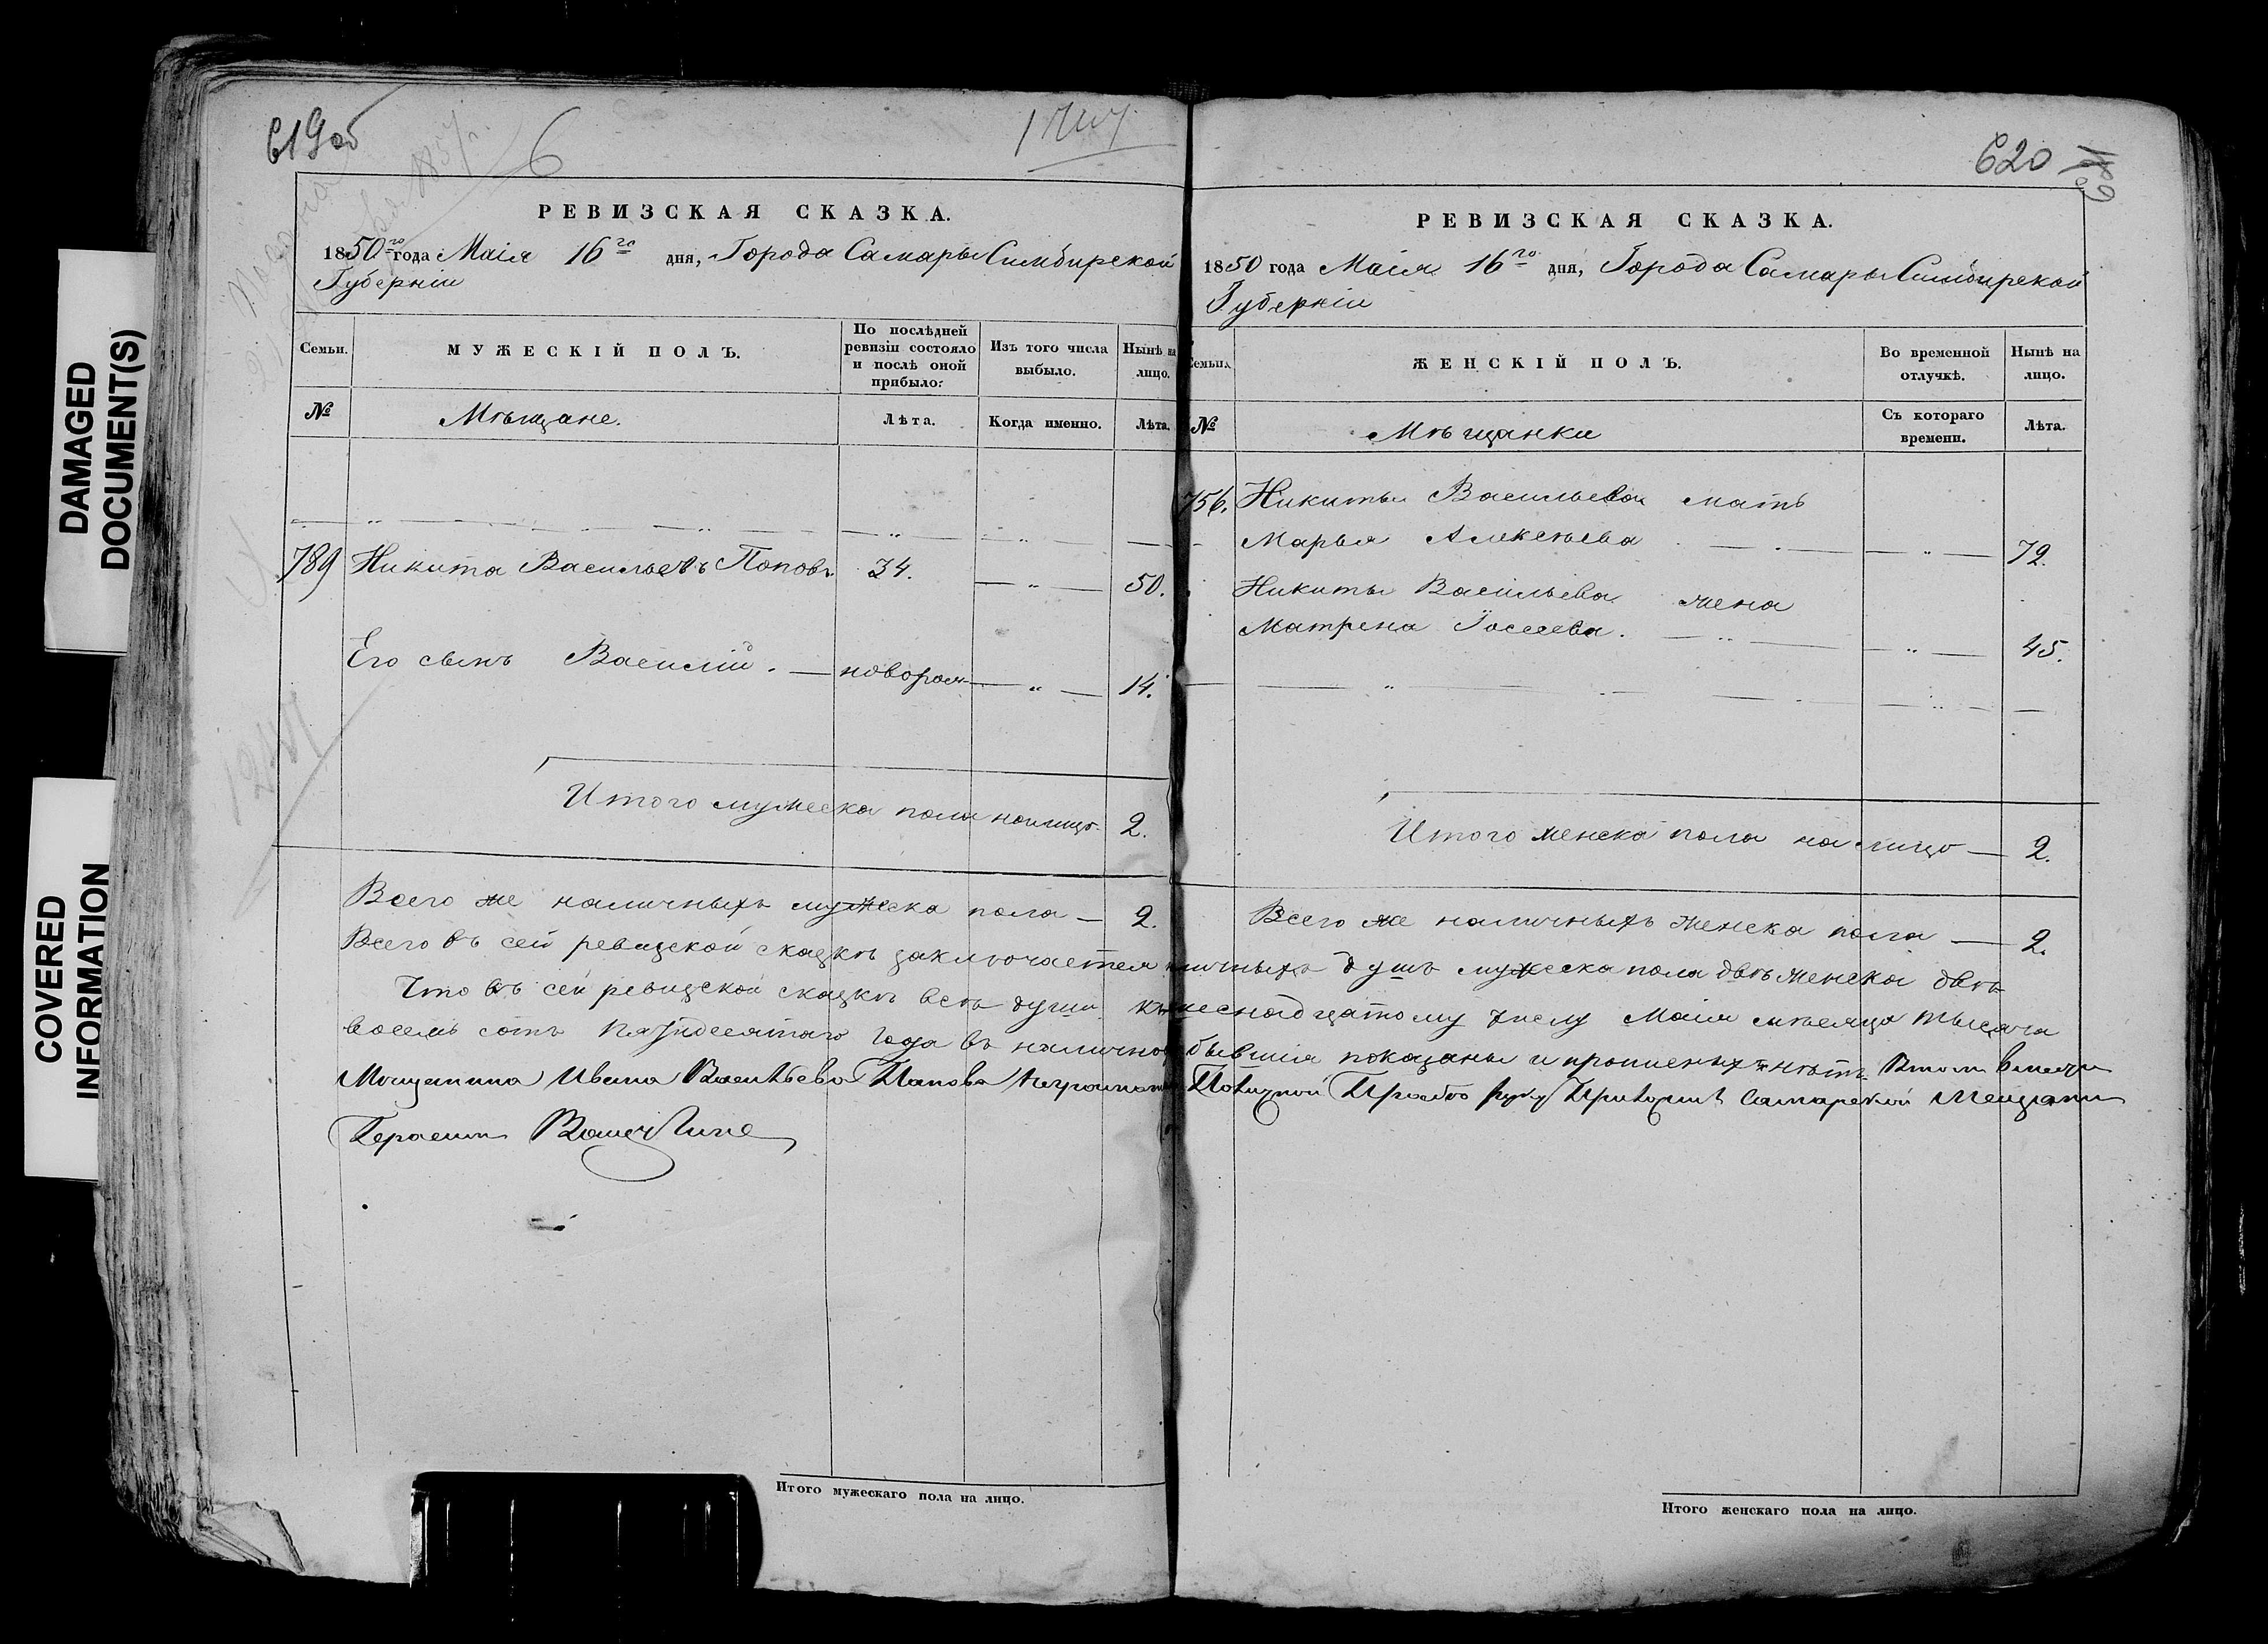 619об
6
620
РЕВИЗСКАЯ СКАЗКА.
1850го года Маія 16го дня, Города Самары Симбирской
Губерніи
Семьи.
МУЖЕСКІЙ ПОЛЪ.
По послѣдней ревизіи состояло и послѣ оной прибыло:
Изъ того числа выбыло.
Нынѣ на лицо.
№
Мѣщане.
Лѣта.
Когда именно.
Лѣта.
789 Никита Васильевъ Поповъ 34. — " — 50.
Его сынъ Василій. — новорож — " — 14.
Итого мужеска пола налицо. 2.
Всего же наличныхъ мужеска пола — 2.
РЕВИЗСКАЯ СКАЗКА.
1850 года Маія 16го дня, Города Самары Симбирской
Губерніи
Семьи.
ЖЕНСКІЙ ПОЛЪ.
Во временной отлучкѣ.
Нынѣ на лицо.
№
Мѣщанки
Съ котораго времени.
Лѣта.
756. Никиты Васильева мать
Марья Алексѣева — " — 72.
Никиты Васильева жена
Матрена — " — 45.
Итого женска пола на лицо — 2.
Всего же наличныхъ женска пола — 2.
Всего въ сей ревизской сказкѣ заключается душъ мужеска пола двѣ женска двѣ
Что въ сей ревизской сказкѣ всѣ души къ шеснадцатому числу Маія мѣсяца тысяча
восемь сотъ пятидесятаго года въ бывшія показаны и прописныхъ нѣтъ.
Мещанина Ивана Васильева Попова руку Приложилъ Самарской Мещанинъ
Герасимъ
DAMAGED
DOCUMENT(S)
COVERED
INFORMATION
Итого мужескаго пола на лицо.
Итого женскаго пола на лицо.